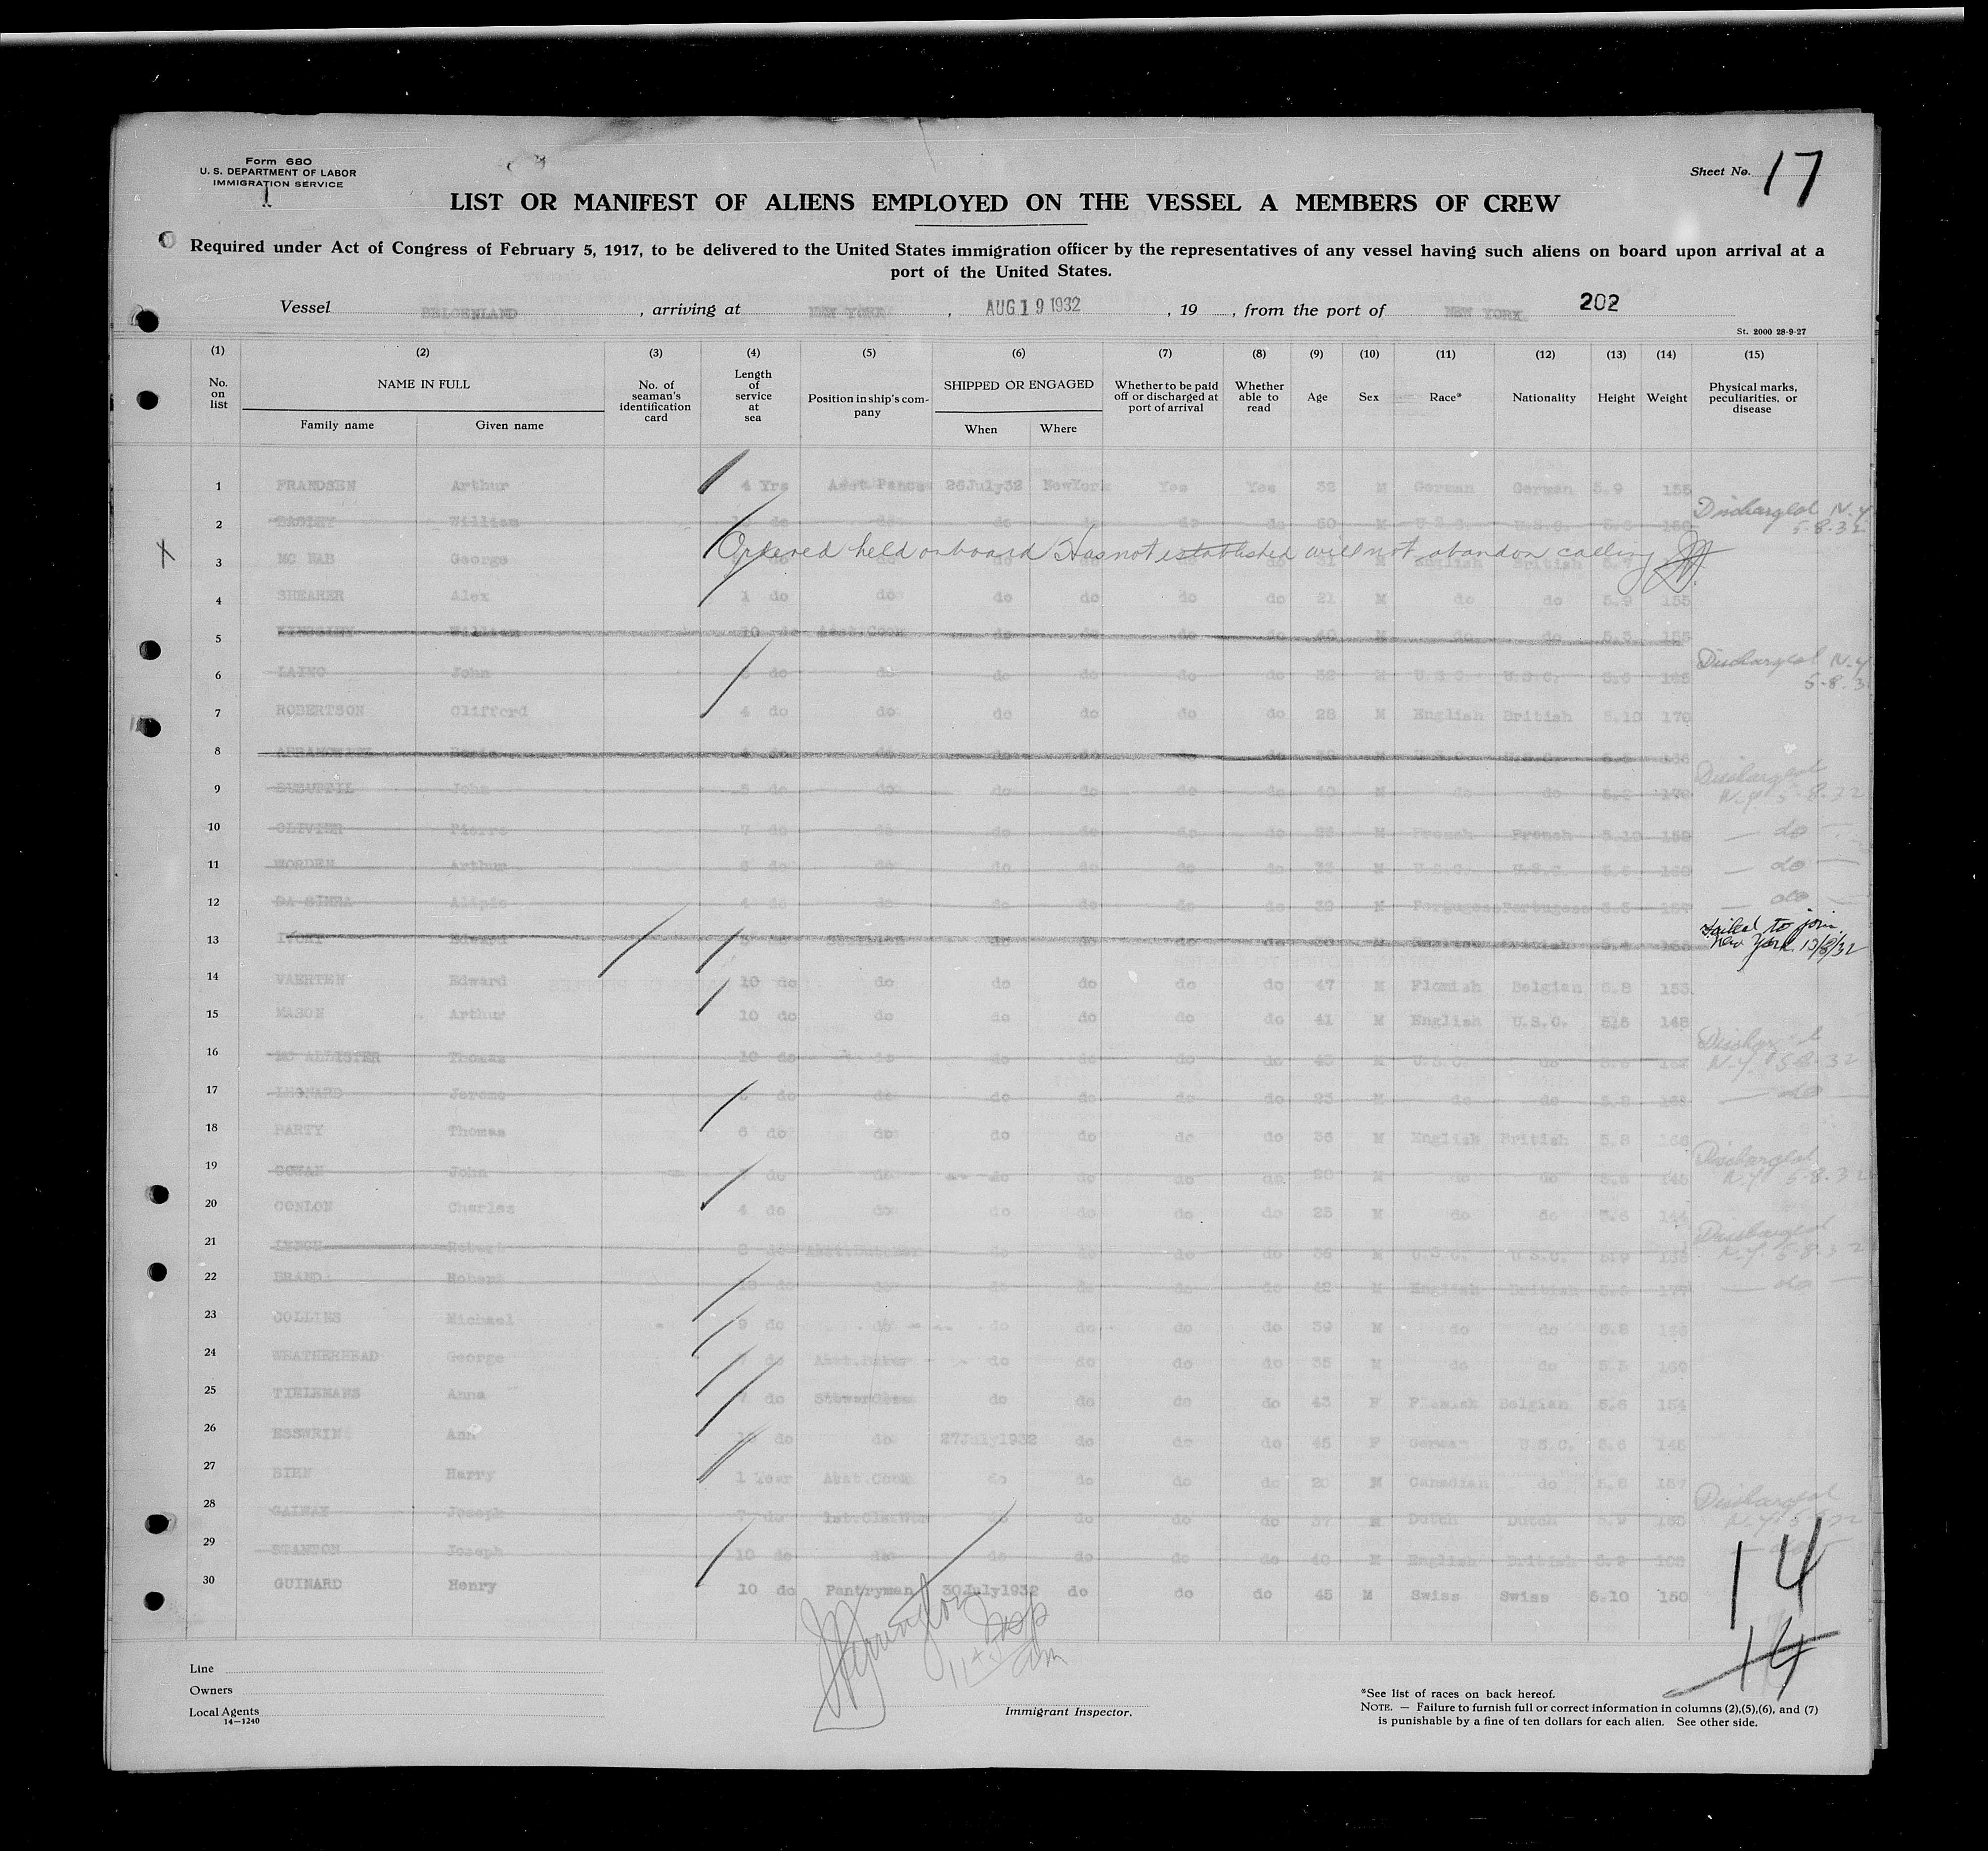 Form 680
U. S. DEPARTMENT OF LABOR
IMMIGRATION SERVICE
Sheet No. 17
LIST OR MANIFEST OF ALIENS EMPLOYED ON THE VESSEL A MEMBERS OF CREW
Required under Act of Congress of February 5, 1917, to be delivered to the United States immigration officer by the representatives of any vessel having such aliens on board upon arrival at a
port of the United States.
Vessel BELGENLAND, arriving at NEW YORK, AUG 19 1932, 19, from the port of NEW YORK 202
St. 2000 28-9-27
(1) (2) (3) (4) (5) (6) (7) (8) (9) (10) (11) (12) (13) (14) (15)
No. on list NAME IN FULL Family name Given name No. of seaman's identification card Length of service at sea Position in ship's company SHIPPED OR ENGAGED When Where Whether to be paid off or discharged at port of arrival Whether able to read Age Sex Race* Nationality Height Weight Physical marks, peculiarities, or disease
1 FRANDSEN Arthur 4 Yrs 26July32 NewYork Yes Yes 32 M German German 5.9 155
2 William do do do do do 50 M U.S.C. U.S.C. Discharged N.Y 5-8-32
Ordered held onboard Has not established will not abandon calling
3 MC NAB George do do do do do do 31 M English British 5.7
4 SHEARER Alex 1 do do do do do do 21 M do do 5.9 155
5 William 10 do Asst.Cook do do do do 40 M do do 5.5 155
6 LAING John do do do do do do 32 M U.S.C. U.S.C. 165 Discharged N.Y 5-8-3
7 ROBERTSON Clifford 4 do do do do do do 28 M English British 5.10 170
8 do do do do do do M U.S.C. U.S.C.
9 John 5 do do do do do do 40 M do do 170 Discharged N.Y 5-8-32
10 OLIVIER Pierre 7 do do do do do do M French French 5.10 do
11 WORDEN Arthur 6 do do do do do do 33 M U.S.C. U.S.C. 5.6 do
12 DA SILVA Alipio 4 do do do do do do 39 M Portugese Portugese 5.5 do
13 Edward do do do do M Failed to join New York 13/8/32
14 VAERTEN Edward 10 do do do do do do 47 M Flemish Belgian 5.8 153
15 MASON Arthur 10 do do do do do do 41 M English U.S.C. 5.5 148
16 MC ALLISTER Thomas 10 do do do do do do M U.S.C. do Discharged N.Y. 5-8-32
17 LEONARD Jerome do do do do do do 23 M do do 5.8 do
18 BARTY Thomas 6 do do do do do do 36 M English British 5.8
19 COWAN John do do do do do do M do do 145 Discharged N.Y. 5-8-32
20 CONLON Charles 4 do do do do do do 25 M do do 5.6 144
21 LYNCH Robert do Asst.Butcher do do do do 36 M U.S.C. U.S.C. 5.9 Discharged N.Y. 5-8-32
22 BRAND Robert do do do do do do 42 M English British 177 do
23 COLLIES Michael 9 do do do do do do 39 M do do 5.8
24 WEATHERHEAD George do Asst.Baker do do do do 35 M do do 5.5 160
25 TIELEMANS Anna do do do do do 43 F Flemish Belgian 5.6 154
26 Ann do do 27July1932 do do do 45 F German U.S.C. 5.6 145
27 BIEN Harry 1 Year Asst.Cook do do do do 20 M Canadian do 5.8 157
28 Joseph 7 do do do do do 37 M Dutch Dutch 5.9 Discharged N.Y. 5-8-32
29 STANTON Joseph 10 do do do do do do 40 M English British do
30 GUINARD Henry 10 do Pantryman 30July1932 do do do 45 M Swiss Swiss 5.10 150
14
14
Insp
Line
Owners
Local Agents
14—1240
Immigrant Inspector.
*See list of races on back hereof.
NOTE. — Failure to furnish full or correct information in columns (2),(5),(6), and (7)
is punishable by a fine of ten dollars for each alien. See other side.